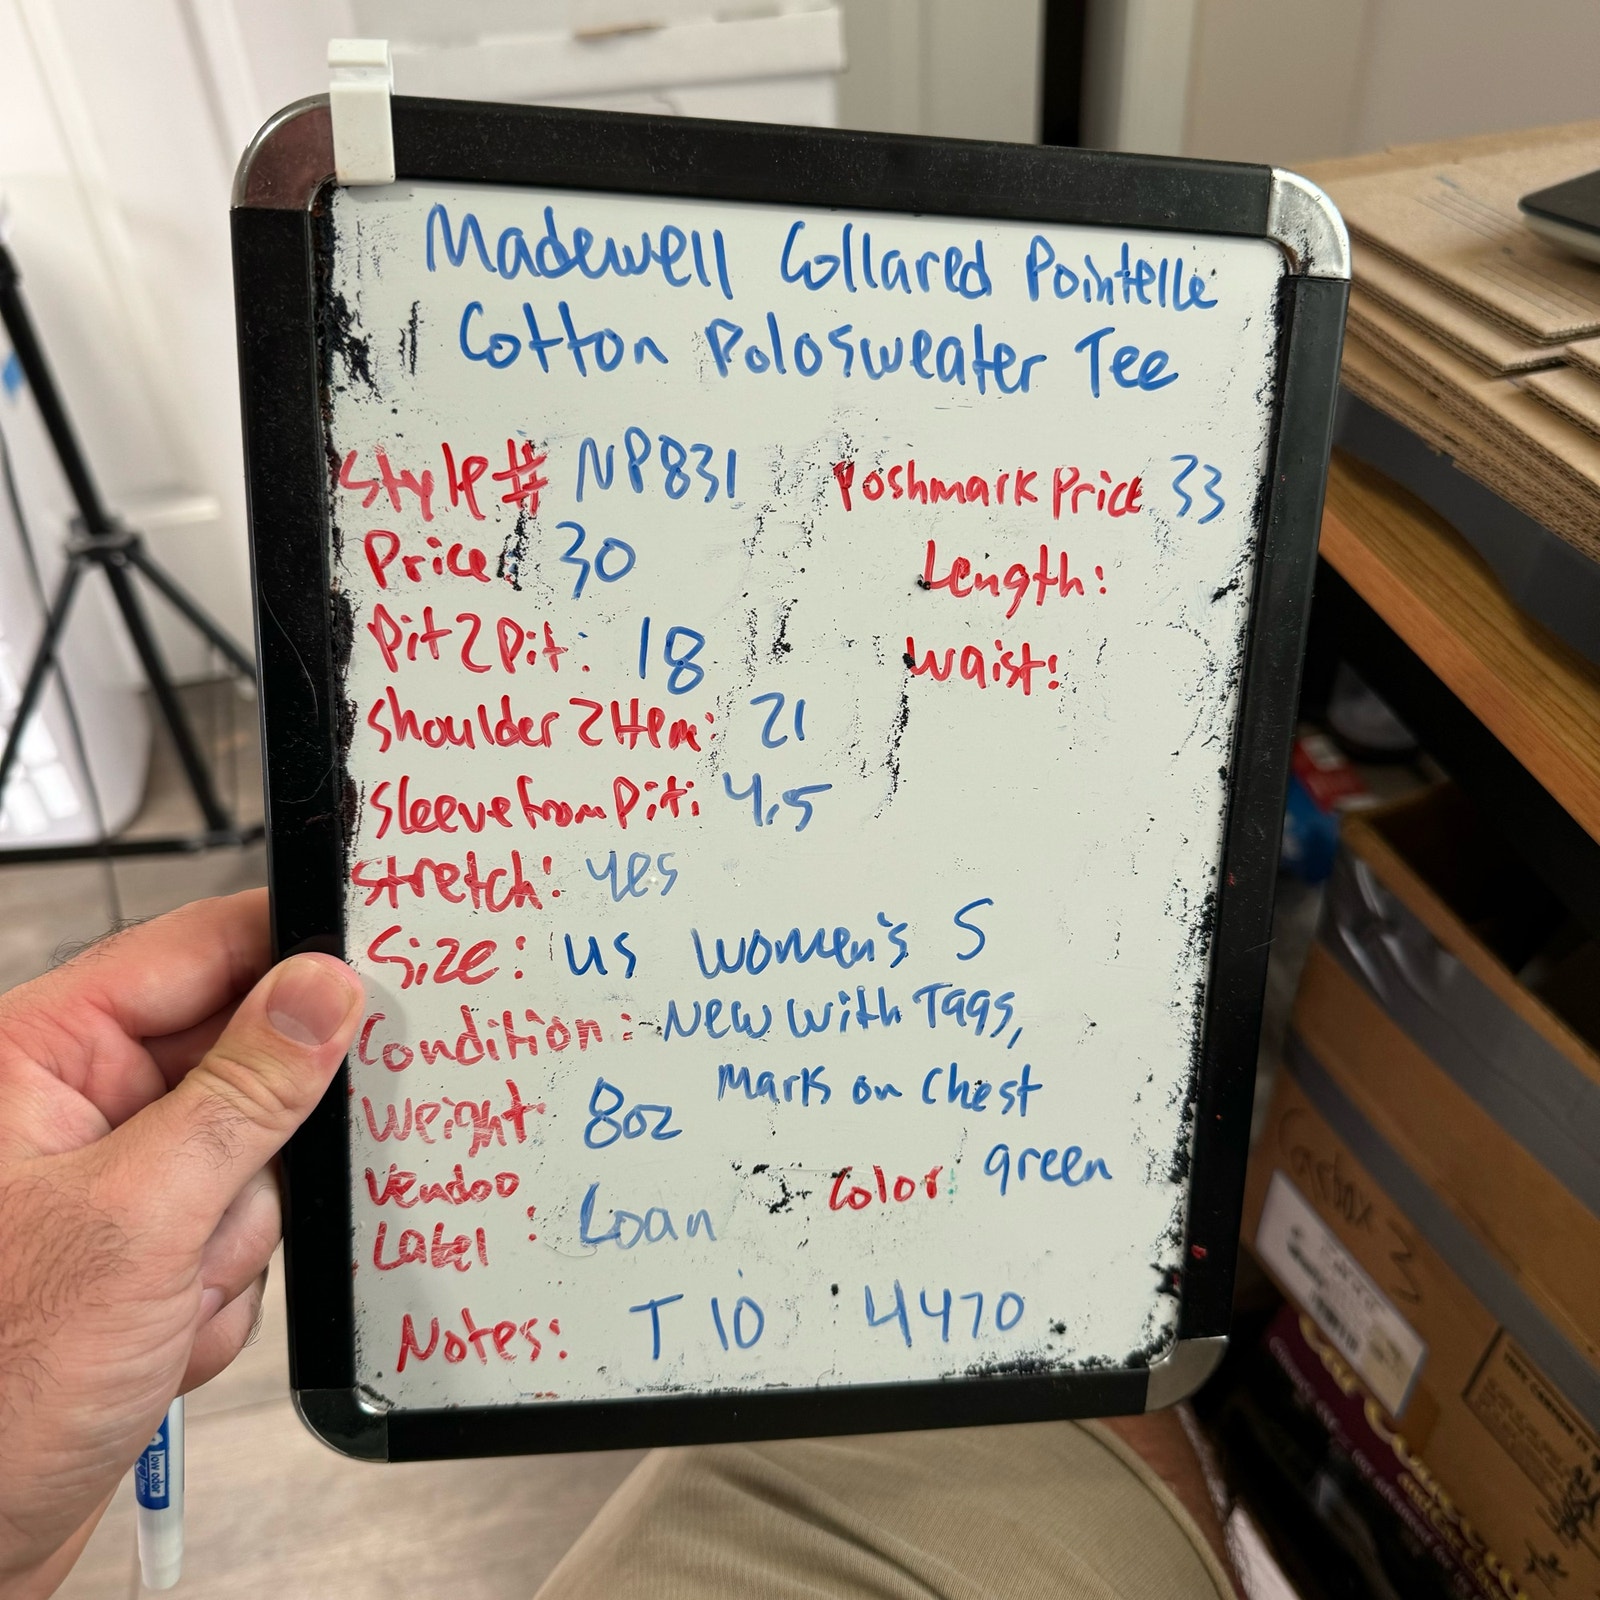 Madewell Collared Pointelle
Cotton Polo Sweater Tee
Style# NP831
Poshmark Price 33
Price: 30
Length:
Pit2Pit: 18
Waist:
Shoulder2Hem: 21
Sleeve from Pit: 4.5
Stretch: yes
Size: US Women's S
Condition: New With Tags,
Mark on Chest
Weight 8oz
Vendoo
Label : Loan
Color: green
Notes: T10 4470
low odor